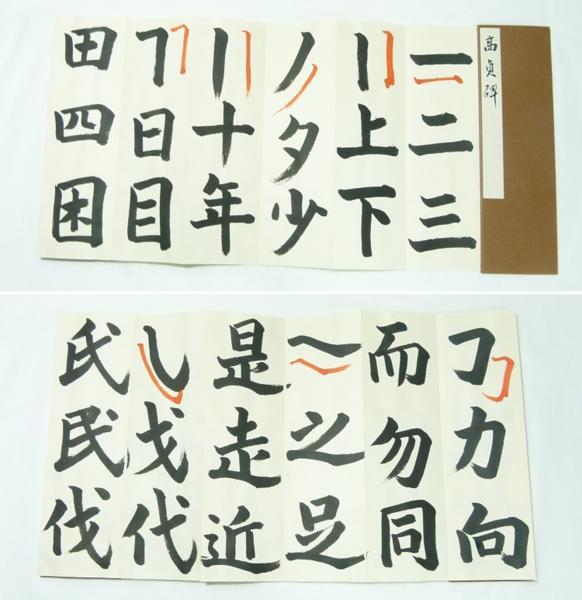 高貞碑
一二三
丨上下
丿夕少
丨十年
𠃍日目
田四困
𠃌力向
而勿同
㇏之足
是走近
㇂戈代
氏民伐